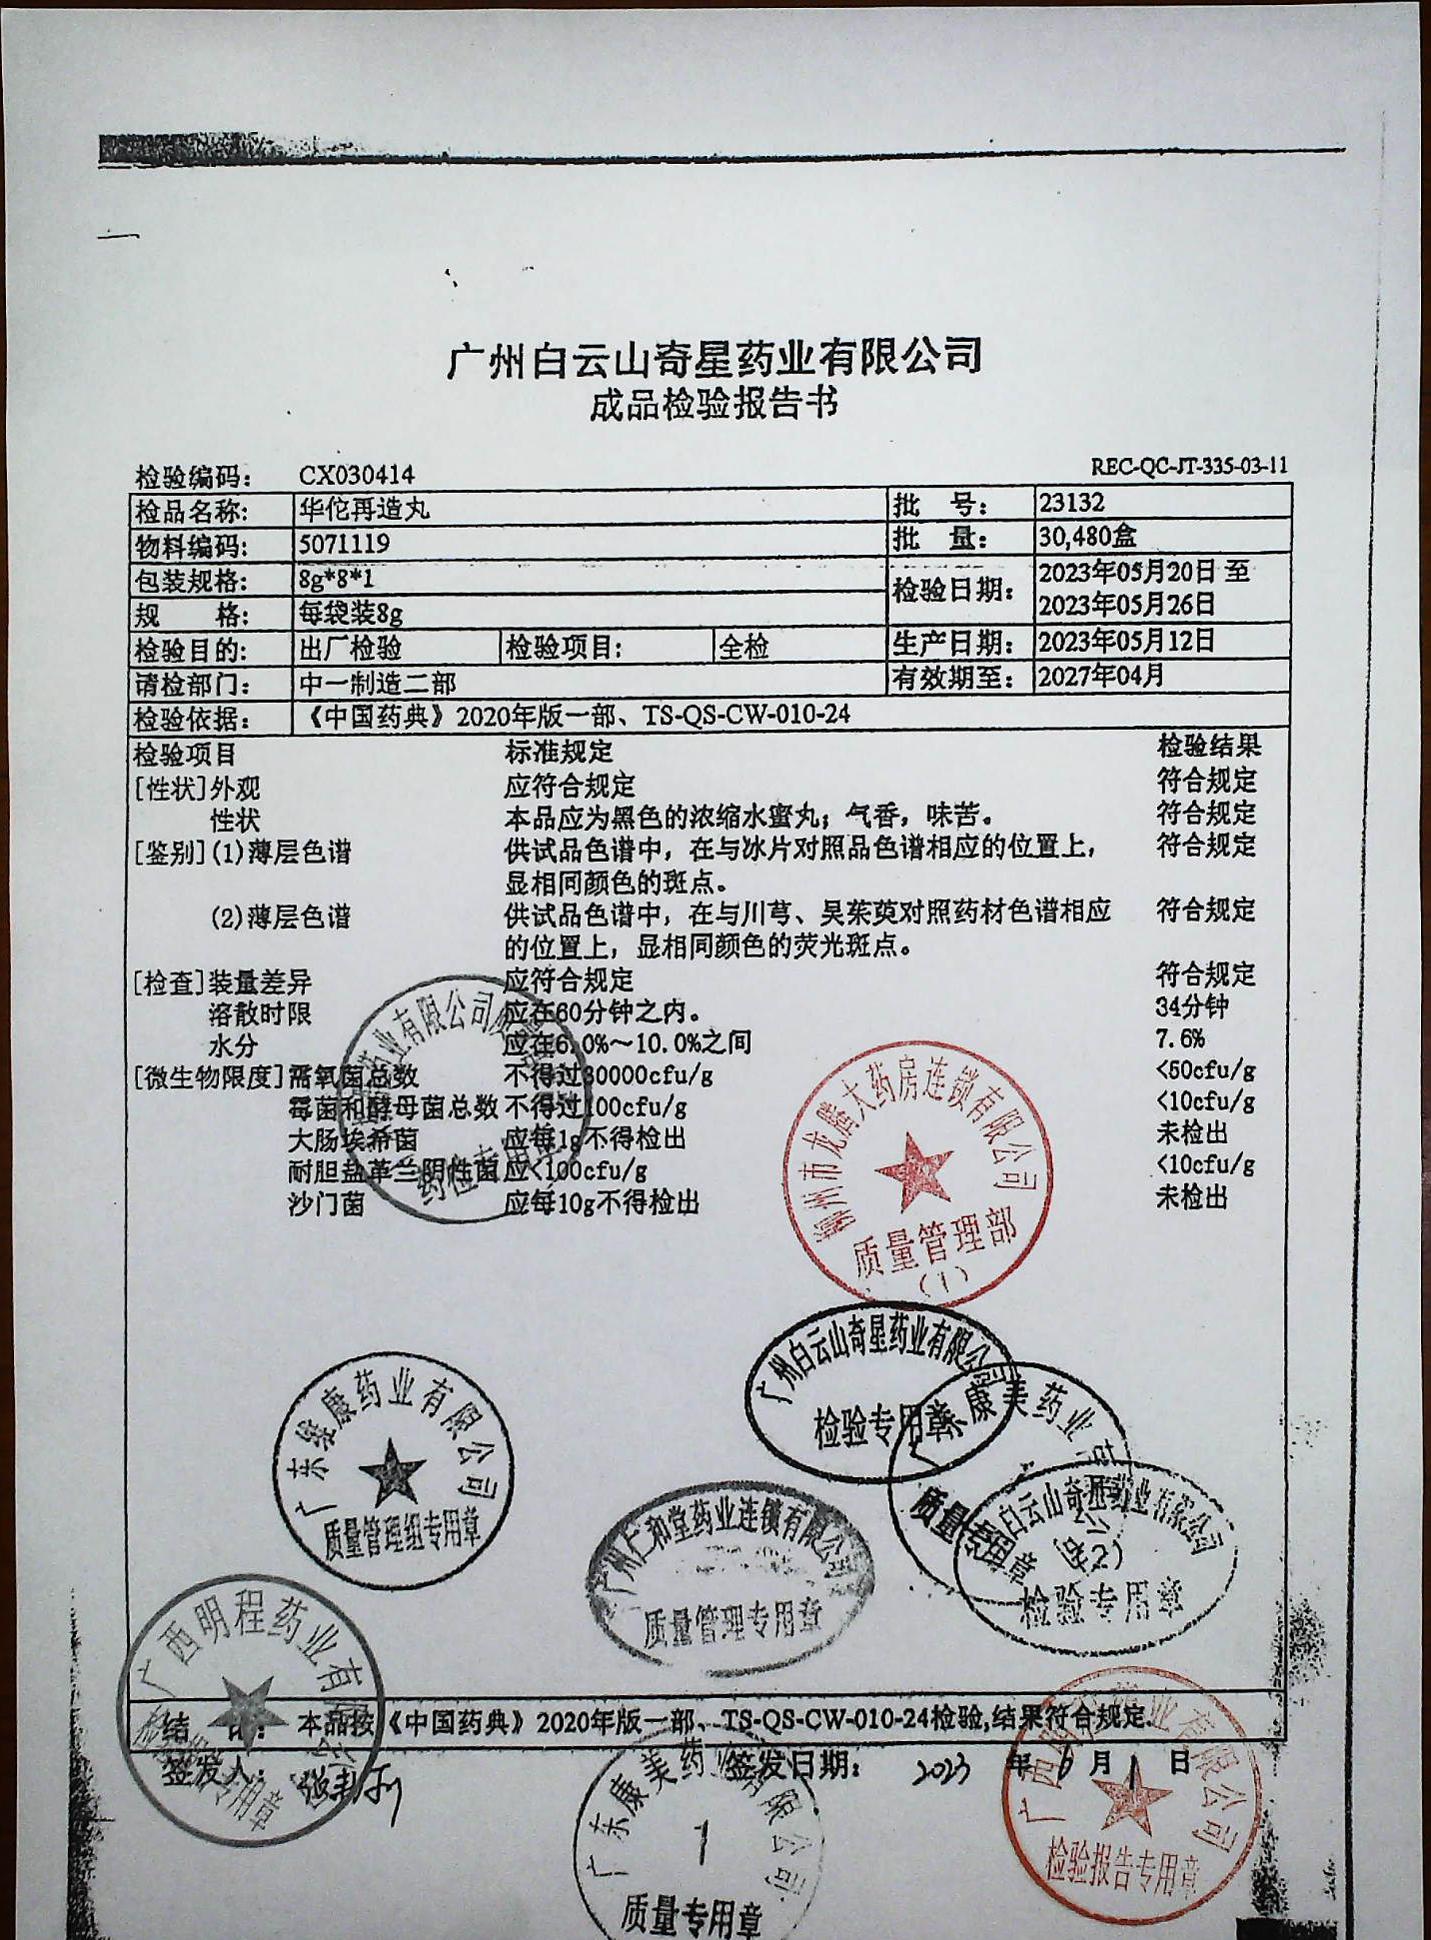 广州白云山奇星药业有限公司
成品检验报告书
检验编码： CX030414 REC-QC-JT-335-03-11
检品名称： 华佗再造丸 批 号： 23132
物料编码： 5071119 批 量： 30,480盒
包装规格： 8g*8*1 检验日期： 2023年05月20日至
2023年05月26日
规 格： 每袋装8g
检验目的： 出厂检验 检验项目： 全检 生产日期： 2023年05月12日
请检部门： 中一制造二部 有效期至： 2027年04月
检验依据： 《中国药典》2020年版一部、TS-QS-CW-010-24
检验项目 标准规定 检验结果
[性状]外观 应符合规定 符合规定
性状 本品应为黑色的浓缩水蜜丸；气香，味苦。 符合规定
[鉴别](1)薄层色谱 供试品色谱中，在与冰片对照品色谱相应的位置上， 符合规定
显相同颜色的斑点。
(2)薄层色谱 供试品色谱中，在与川芎、吴茱萸对照药材色谱相应 符合规定
的位置上，显相同颜色的荧光斑点。
[检查]装量差异 应符合规定 符合规定
溶散时限 应在60分钟之内。 34分钟
水分 应在6.0%～10.0%之间 7.6%
[微生物限度]需氧菌总数 不得过30000cfu/g <50cfu/g
霉菌和酵母菌总数 不得过100cfu/g <10cfu/g
大肠埃希菌 应每1g不得检出 未检出
耐胆盐革兰阴性菌 应<100cfu/g <10cfu/g
沙门菌 应每10g不得检出 未检出
药业有限公司
药检专用章
柳州市龙腾大药房连锁有限公司
质量管理部
(1)
广州白云山奇星药业有限公司
检验专用章
广东康美药业
质量专用章
(2)
白云山奇星药业有限公司
检验专用章
药业有限公司
质量管理组专用章
广州仁和堂药业连锁有限公司
质量管理专用章
广西明程药业有限
专用章
结 论： 本品按《中国药典》2020年版一部、TS-QS-CW-010-24检验,结果符合规定.
签发人： 签发日期： 2023 年 6 月 1 日
广东康美药业有限公司
1
质量专用章
广西 药业有限公司
检验报告专用章